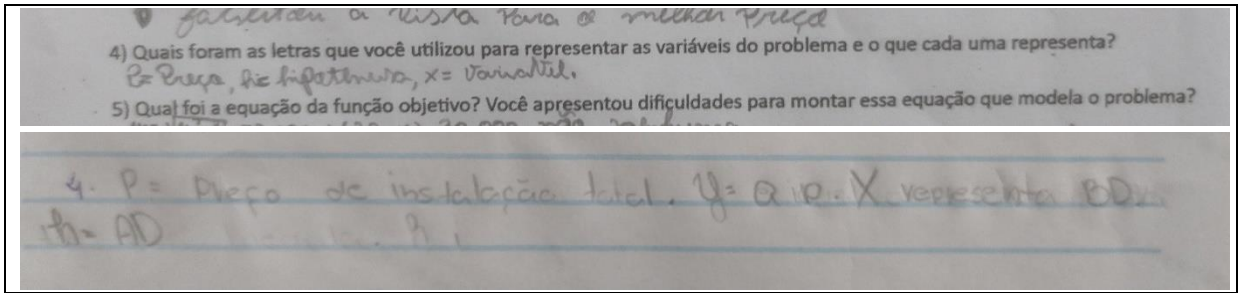 facilitou a vista para o melhor preço
4) Quais foram as letras que você utilizou para representar as variáveis do problema e o que cada uma representa?
P= Preço, h= hipotenusa, x= Variavél.
5) Qual foi a equação da função objetivo? Você apresentou dificuldades para montar essa equação que modela o problema?
4. P= Preço de instalação total. y= X representa BD.
h= AD